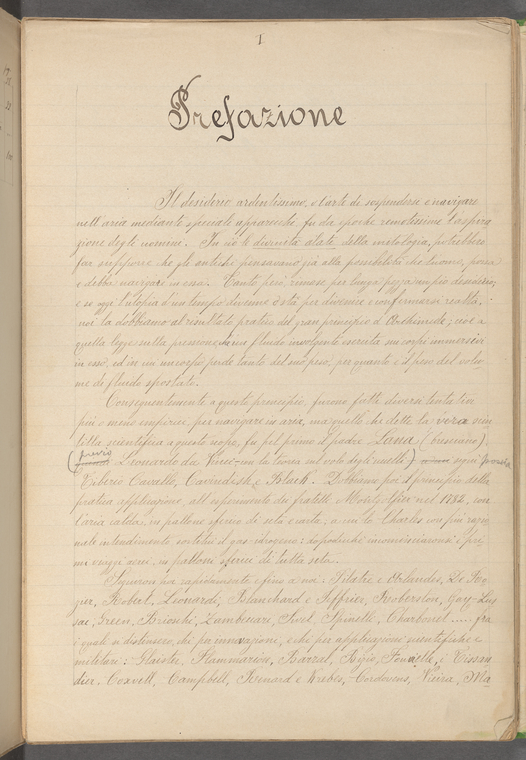 1
Prefazione
Il desiderio ardentissimo, e l'arte di sospendersi e navigare
nell'aria mediante speciali apparecchi, fu da epoche remotissime l'aspira
zione degli uomini. In ciò le divinità alate della mitologia, potrebbero
far supporre che gli antichi pensavano già alla possibilità che l'uomo, possa
e debba navigare in essa. Tanto però rimase per lunga pezza un pio desiderio;
e se oggi l'utopia d'un tempo divenne o sta per divenire e confermarsi realtà,
noi la dobbiamo al resultato pratico del gran principio d'Archimede; cioè a
quella legge sulla pressione, di un fluido involgente esercita sui corpi immersi
in esso, ed in cui un corpo perde tanto del suo peso, per quanto è il peso del volu
me di fluido spostato.
Conseguentemente a questo principio, furono fatti diversi tentativi
più o meno empirici, per navigare in aria, ma quello che dette la vera
tinta scientifica a questo scopo, fu pel primo il padre Lana (bresciano),
(previo Leonardo da Vinci - con la teoria sul volo degli uccelli) ogni
Tiberio Cavallo, Cavendish e Black. Dobbiamo poi il principio della
pratica applicazione, all'esperimento dei fratelli Montgolfier nel 1782, con
l'aria calda, in pallone sferico di seta e carta, a cui lo Charles con più razio
nale intendimento sostituì il gas idrogeno: dopodichè incominciarono i pri
mi viaggi aerei, in palloni sferici di tutta seta.
rapidamente e fino a noi: Pilatre e Arlandes, De Ro
zier, Robert, Leonardi, Blanchard e Jeffries, Roberston, Gay-Lus
sac, Green, Brioschi, Zambeccari, Sivel, Spinelli, Charbonet ..... fra
i quali si distinsero, chi per innovazioni, e chi per applicazioni scientifiche e
militari: Glaister, Flammarion, Barral, Bixio, Fonvielle, e Tissan
dier. Coxvell, Campbell, Renard e Krebes, Cordovens, Vieira, Ma